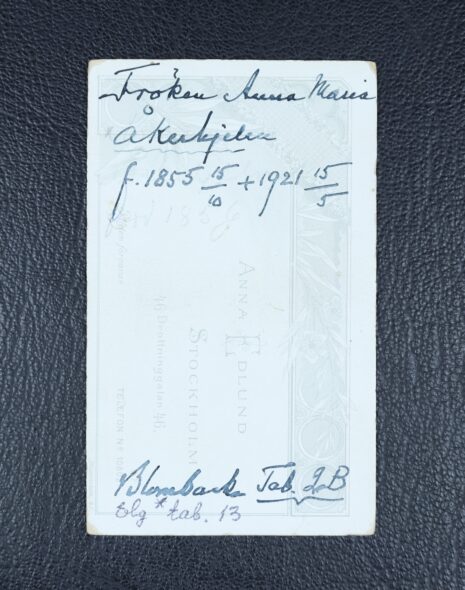 Fröken Anna Maria
Åkerhjelm
f. 1855 15/10 + 1921 15/5
ANNA EDLUND
STOCKHOLM
46 Drottninggatan 46.
TELEFON Nº
Blombacka Tab. 2B
tab. 13